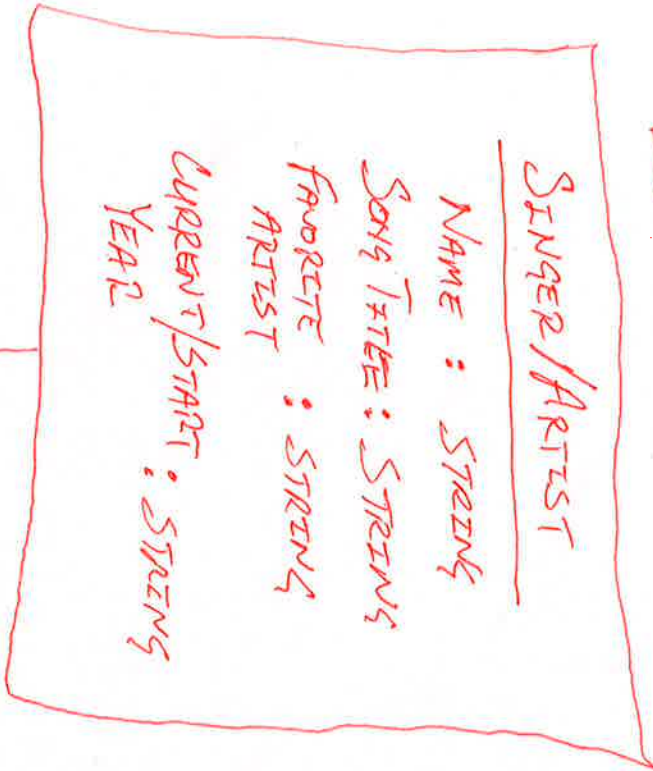 SINGER/ARTIST
NAME : STRING
SONG TITLE : STRING
FAVORITE
ARTIST : STRING
CURRENT/START : STRING
YEAR